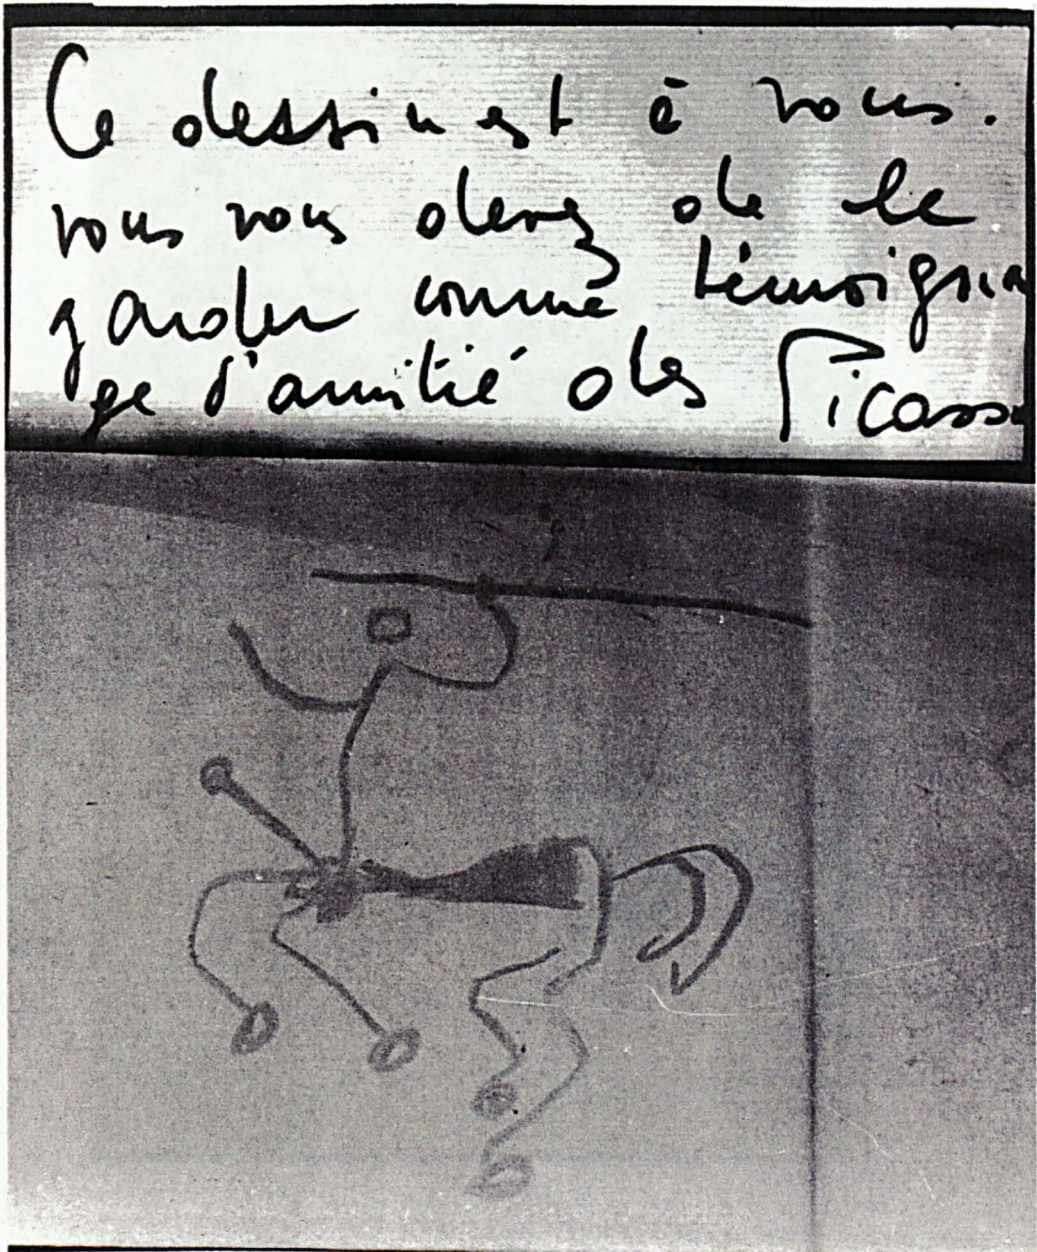 Ce dessin est à vous.
vous vous devez de le
garder comme témoigna
ge d'amitié des Picasso